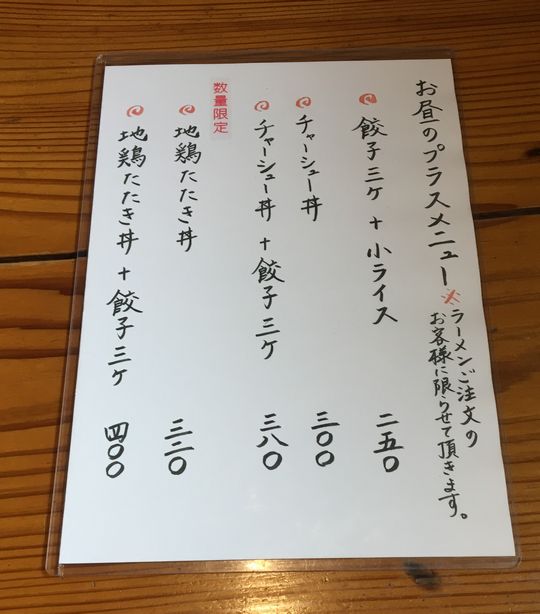 お昼のプラスメニュー
※ラーメンご注文の
お客様に限らせて頂きます。
餃子三ケ + 小ライス 二五〇
チャーシュー丼 三〇〇
チャーシュー丼 + 餃子三ケ 三八〇
数量限定
地鶏たたき丼 三二〇
地鶏たたき丼 + 餃子三ケ 四〇〇